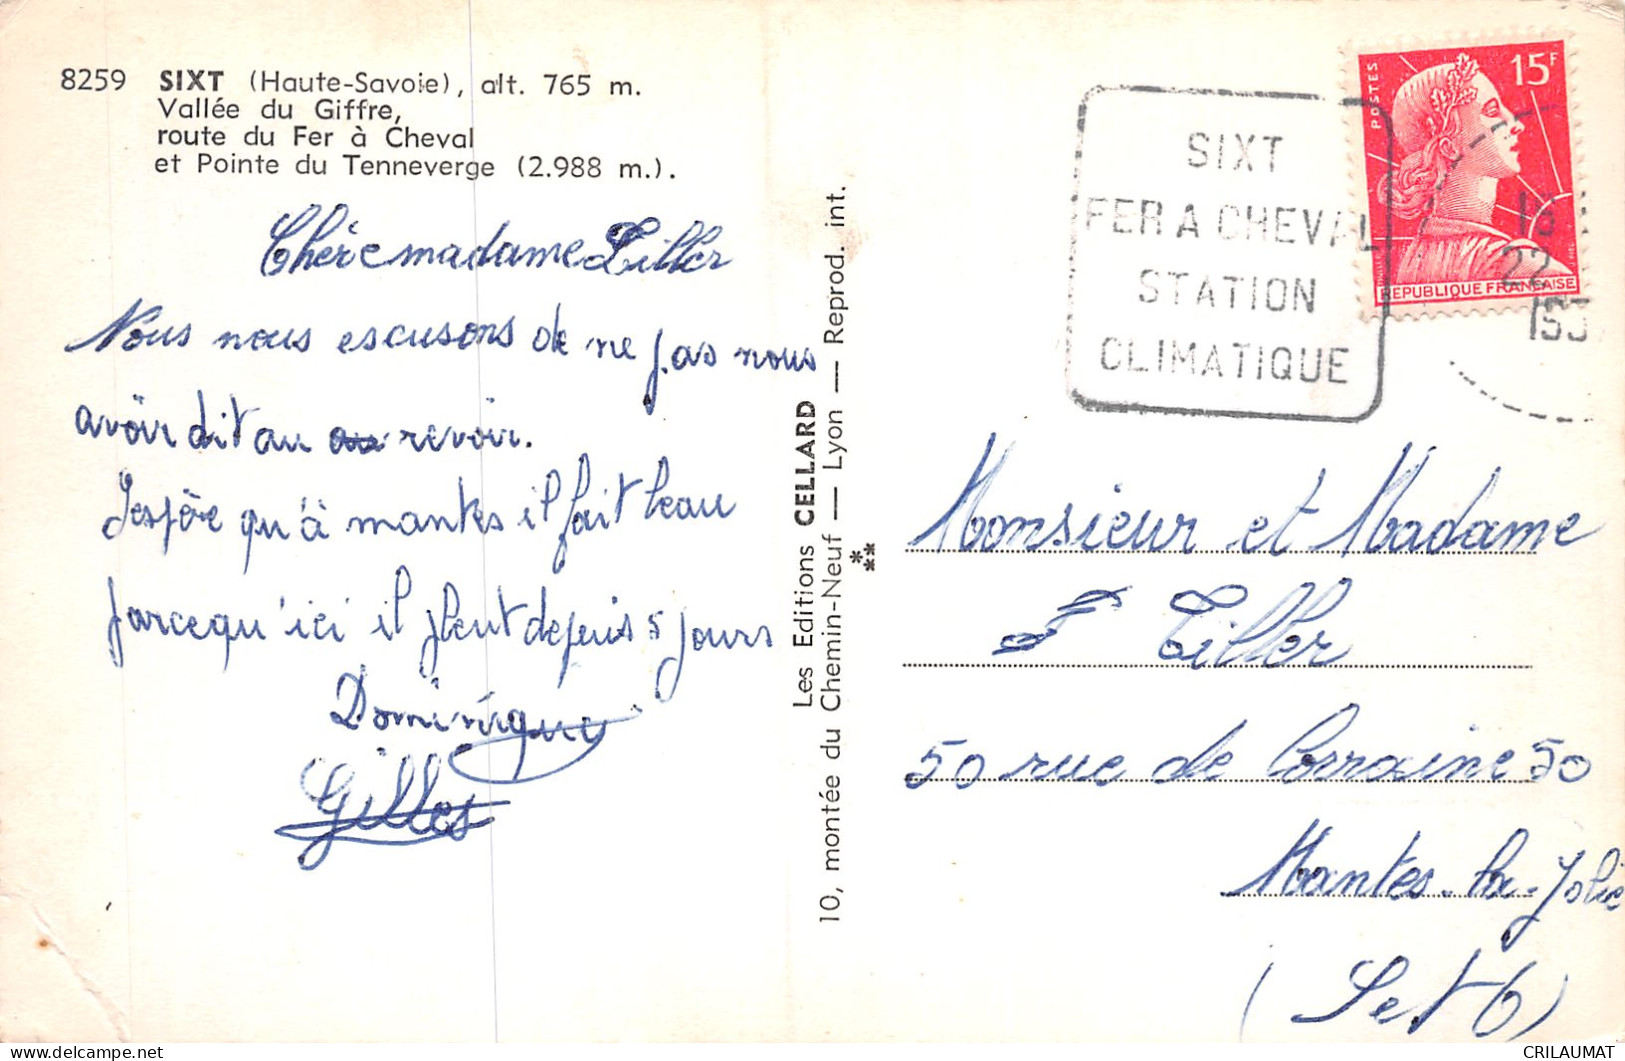 8259 SIXT (Haute-Savoie), alt. 765 m.
Vallée du Giffre,
route du Fer à Cheval
et Pointe du Tenneverge (2.988 m.).
Chère madame Tiller
Nous nous escusons de ne pas nous
avoir dit au revoir.
Jespère qu'à mantes il fait beau
parcequ'ici il pleut depuis 5 jours
Dominique
Gilles
Les Editions CELLARD
10, montée du Chemin-Neuf — Lyon — Reprod. int.
SIXT
FER A CHEVAL
STATION
CLIMATIQUE
POSTES
15F
REPUBLIQUE FRANÇAISE
22
Monsieur et Madame
Tiller
50 rue de Lorraine 50
Mantes-la-Jolie
(S et O)
CRILAUMAT